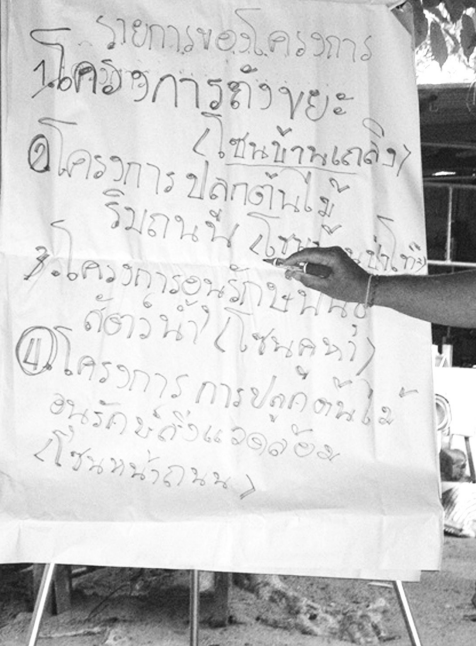 รายการของโครงการ
1.โครงการถังขยะ
(โซนบ้านเถลิง)
2 โครงการ ปลูกต้นไม้
ริมถนน (โซน ป่าไทย
3.โครงการอนุรักษ์พันธุ์
สัตว์น้ำ (โซนคูหา)
4.โครงการ การปลูกต้นไม้
อนุรักษ์สิ่งแวดล้อม
(โซนหน้าถนน)